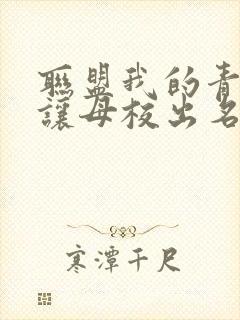 聯盟我的青
讓母校出名
寒潭千尺